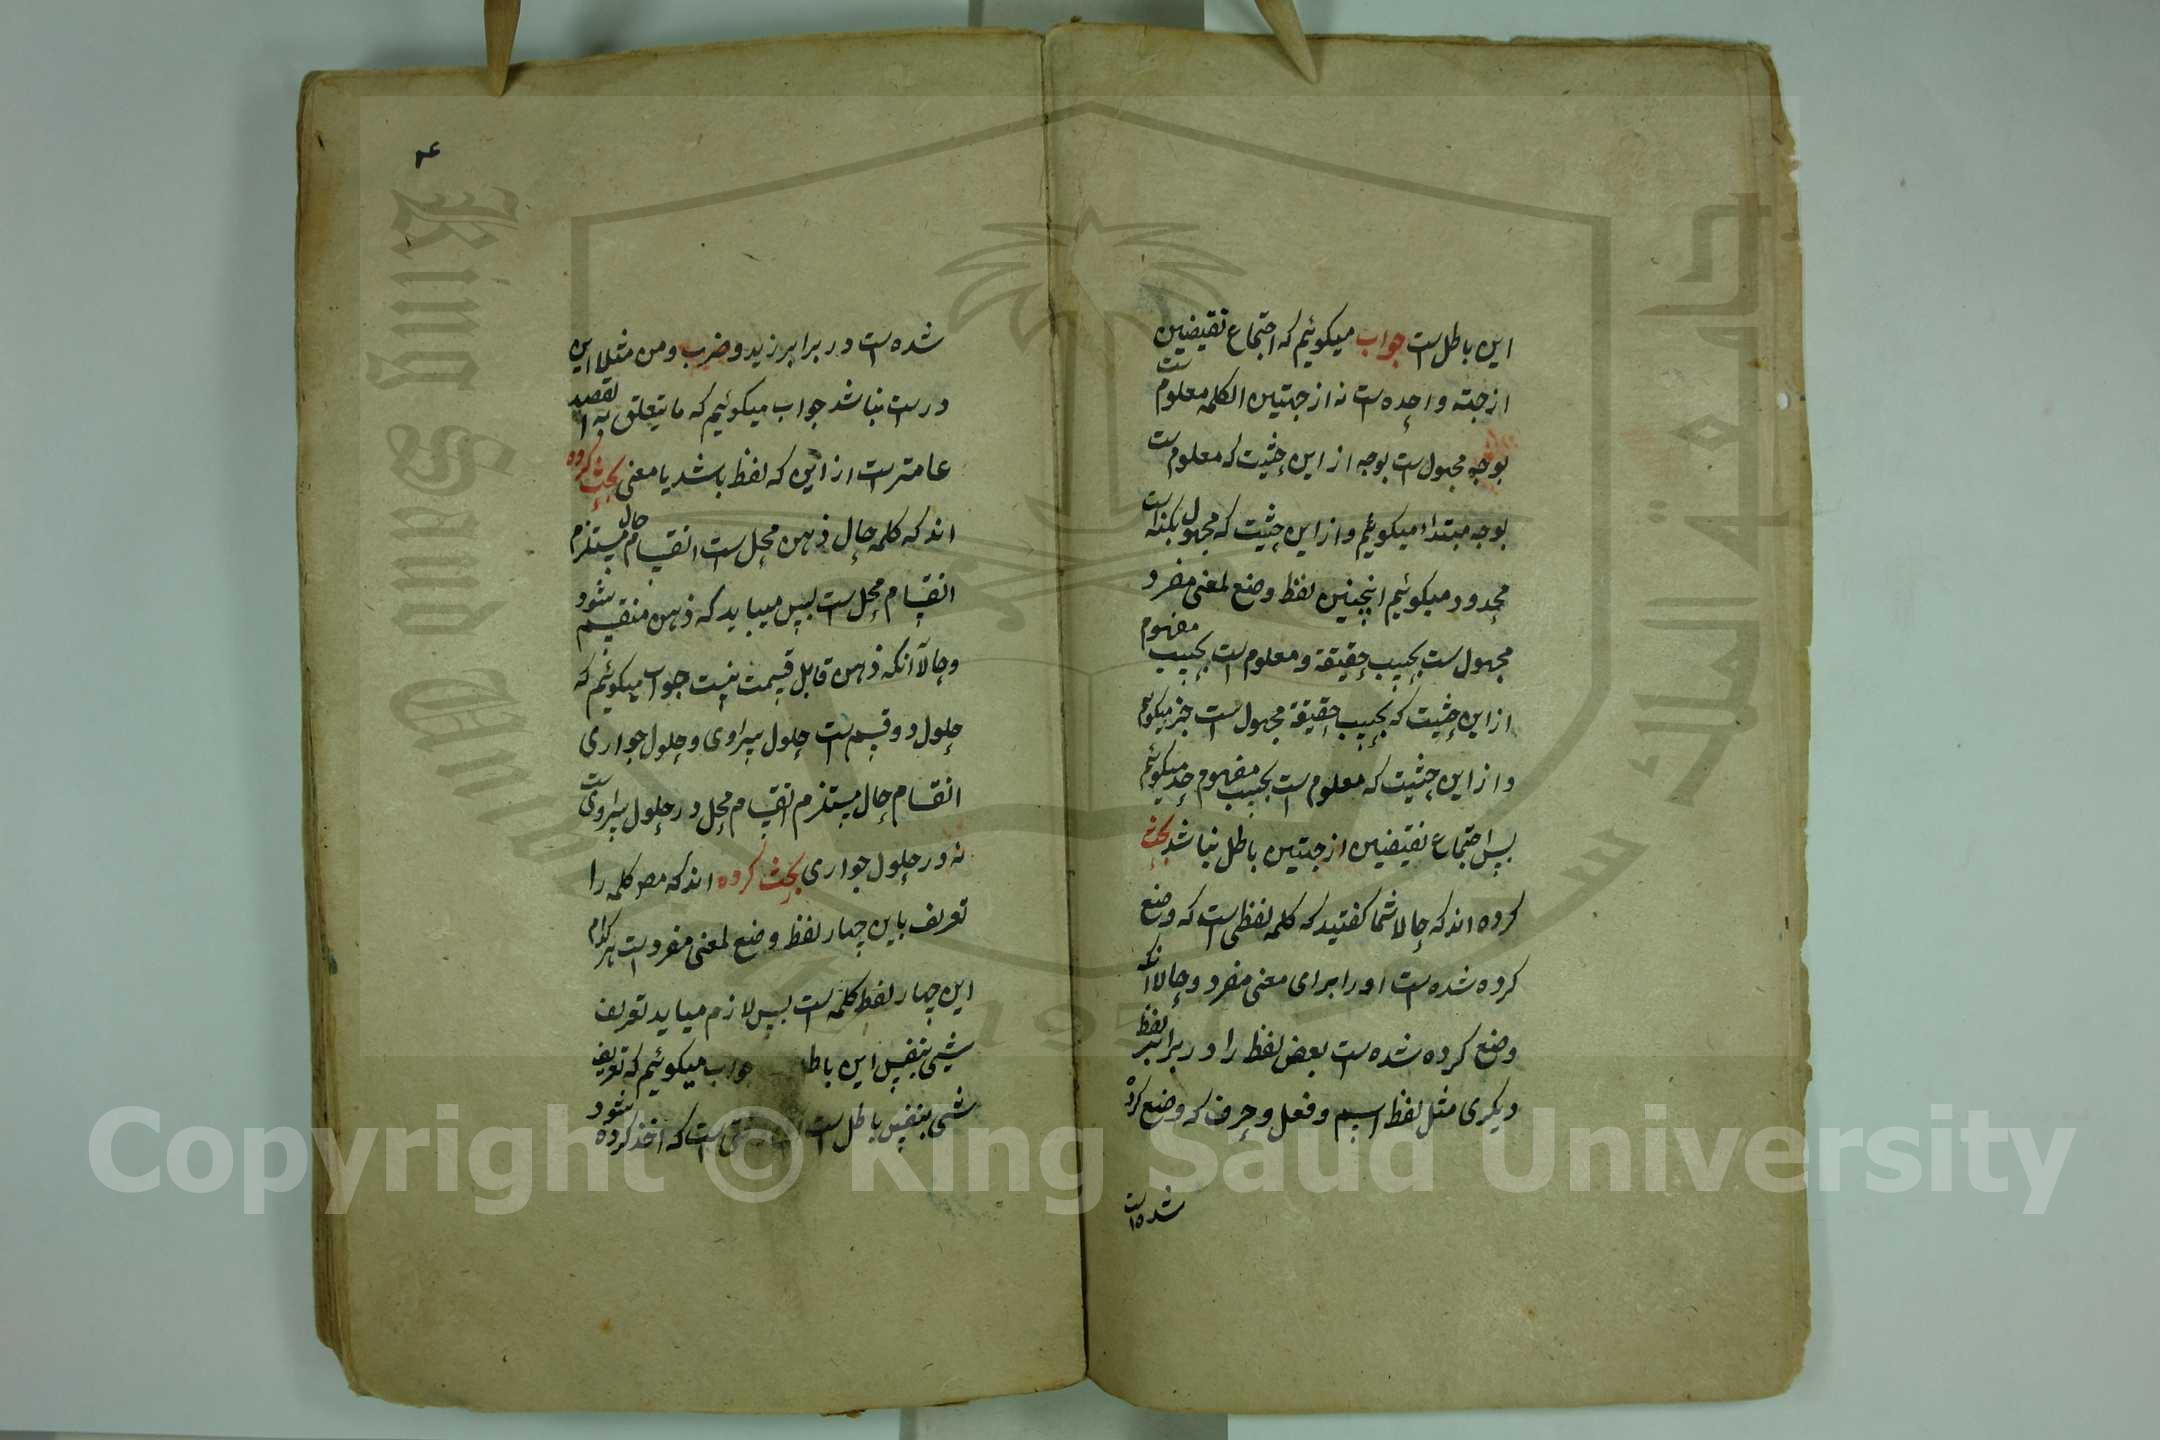 این باطل است جواب میکوئیم که اجتماع نقیضین
از جته واحده است نه از جتین الکلمه معلوم است
بوجه مجهول است بوجه از این حثیت که معلوم است
بوجه مبتداء میکوئیم و از این حثیت که مجهول بکنه است
محدود میکوئیم اینچنین لفظ وضع لمعنی مفرد
مجهول ست بحسب حقیقة و معلوم است بحسب مفهوم
از این حثیت که بحسب حقیقة مجهول است خبر میکوئیم
و از این حثیت که معلوم است بحسب مفهوم حد میکوئیم
پس اجتماع نقیضین از جتین باطل نباشد بحث
کرده اند که حالا شما کفتید که کلمه لفظی است که وضع
کرده شده است او را برای معنی مفرد و حالا آنکه
وضع کرده شده ست بعض لفظ را در برابر لفظ
دیکری مثل لفظ اسم و فعل و حرف که وضع کرده
شده است
۴
شده است در برابر زید و ضرب و من مثلا این
درست نباشد جواب میکوئیم که ما یتعلق به القصد
عامتر است از این که لفظ باشد یا معنی بحث کرده
اند که کلمه حال ذهن محل ست انقسام حال مستلزم
انقسام محل ست پس میباید که ذهن منقسم شود
و حالآ آنکه ذهن قابل قسمت نیست جواب میکوئیم که
حلول دو قسم است حلول سراوی و حلول جواری
انقسام حال مستلزم انقسام محل در حلول سراوی ست
نه در حلول جواری بحث کرده اند که مص کلمه را
تعریف باین چهار لفظ وضع لمعنی مفرد ست هر کدام
این چهار لفظ کلمه است پس لازم میاید تعریف
شیی بنفس این باطل جواب میکوئیم که تعریف
شیی بنفس باطل ست است که اخذ کرده شود
King Saud
جامعة الملك سعود
1957
Copyright © King Saud University